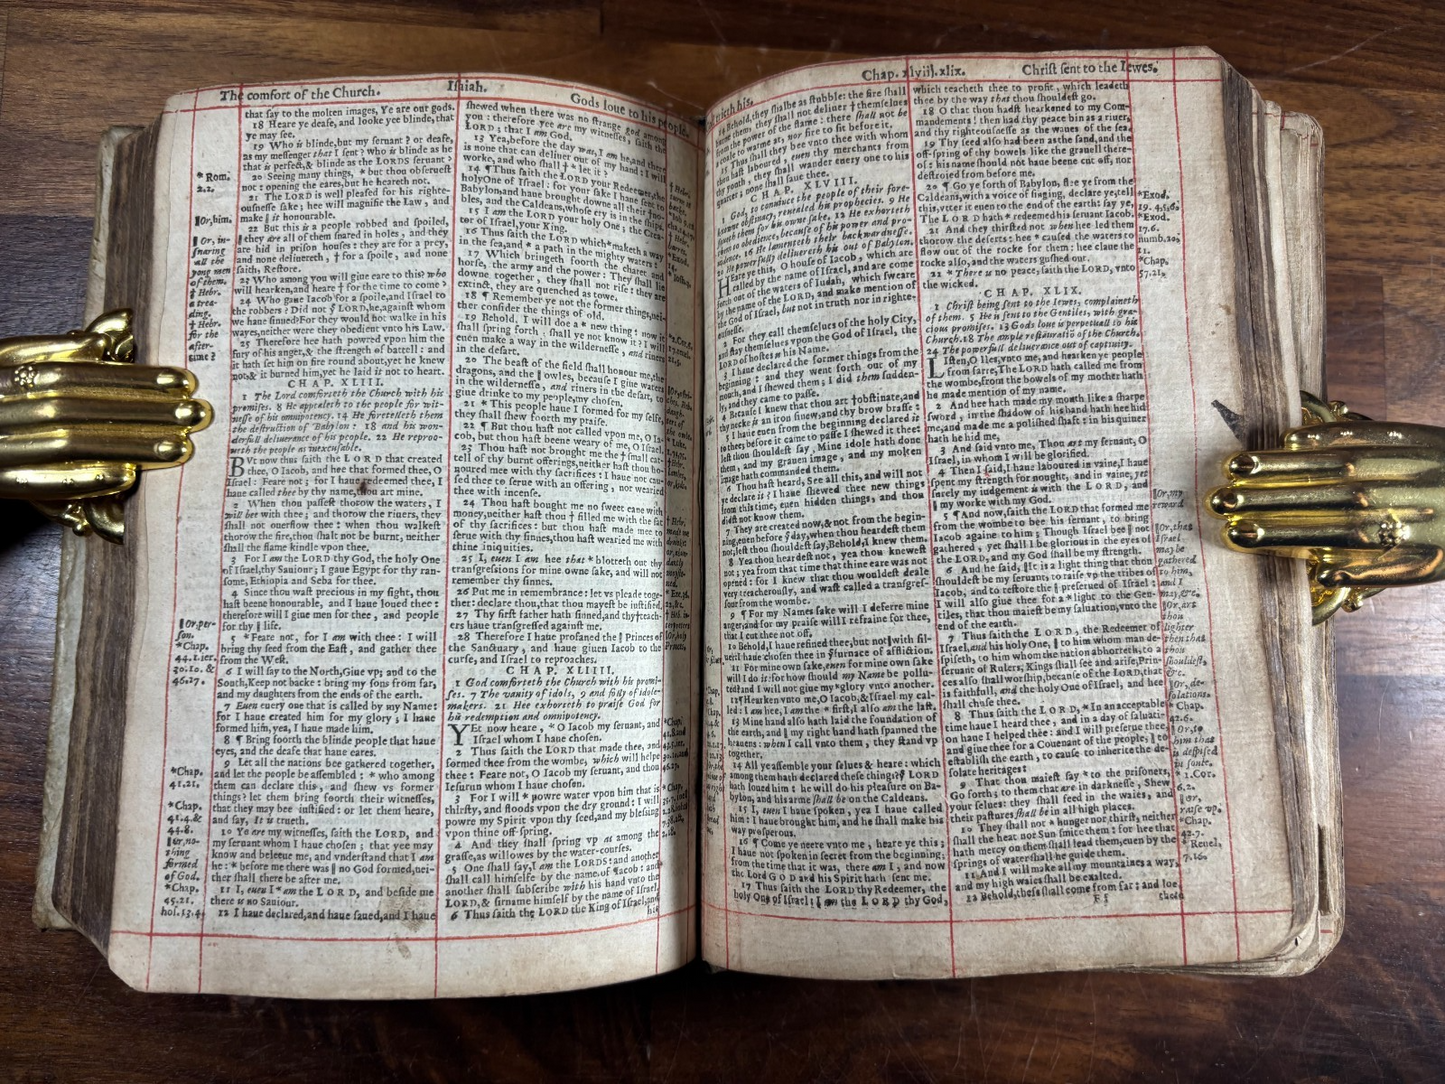 The comfort of the Church.
Isaiah.
Gods loue to his people.
that say to the molten images, Ye are our gods.
18 Heare ye deafe, and looke yee blinde, that
ye may see.
19 Who is blinde, but my seruant? or deafe,
as my messenger that I sent? who is blinde as he
that is perfect, & blinde as the LORDS seruant?
20 Seeing many things, * but thou obseruest
not: opening the eares, but he heareth not.
21 The LORD is well pleased for his righte-
ousnesse sake; hee will magnifie the Law, and
make ‖ it honourable.
22 But this is a people robbed and spoiled,
‖ they are all of them snared in holes, and they
are hid in prison houses: they are for a prey,
and none deliuereth, † for a spoile, and none
saith, Restore.
23 Who among you will giue eare to this? who
will hearken, and heare † for the time to come?
24 Who gaue Iacob for a spoile, and Israel to
the robbers? Did not ye LORD, he, against whom
we haue sinned? For they would not walke in his
wayes, neither were they obedient vnto his Law.
25 Therefore hee hath powred vpon him the
fury of his anger, & the strength of battell: and
it hath set him on fire round about, yet he knew
not, & it burned him, yet he laid it not to heart.
CHAP. XLIII.
1 The Lord comforteth the Church with his
promises. 8 He appealeth to the people for wit-
nesse of his omnipotency. 14 He foretelleth them
the destruction of Babylon: 18 and his won-
derfull deliuerance of his people. 22 Hee reproo-
ueth the people as inexcusable.
BVt now thus saith the LORD that created
thee, O Iacob, and hee that formed thee, O
Israel: Feare not; for I haue redeemed thee, I
haue called thee by thy name, thou art mine.
2 When thou passest thorow the waters, I
will bee with thee; and thorow the riuers, they
shall not ouerflow thee: when thou walkest
thorow the fire, thou shalt not be burnt, neither
shall the flame kindle vpon thee.
3 For I am the LORD thy God, the holy One
of Israel, thy Sauiour; I gaue Egypt for thy ran-
some, Ethiopia and Seba for thee.
4 Since thou wast precious in my sight, thou
hast beene honourable, and I haue loued thee:
therefore will I giue men for thee, and people
for thy ‖ life.
5 * Feare not, for I am with thee: I will
bring thy seed from the East, and gather thee
from the West.
6 I will say to the North, Giue vp; and to the
South, Keep not backe: bring my sons from far,
and my daughters from the ends of the earth.
7 Euen euery one that is called by my Name:
for I haue created him for my glory; I haue
formed him, yea, I haue made him.
8 ¶ Bring foorth the blinde people that haue
eyes, and the deafe that haue eares.
9 Let all the nations bee gathered together,
and let the people be assembled: * who among
them can declare this, and shew vs former
things? let them bring foorth their witnesses,
that they may bee iustified: or let them heare,
and say, It is trueth.
10 Ye are my witnesses, saith the LORD, and
my seruant whom I haue chosen; that yee may
know and beleeue me, and vnderstand that I am
he: * before me there was ‖ no God formed, nei-
ther shall there be after me.
11 I, euen I * am the LORD, and beside me
there is no Sauiour.
12 I haue declared, and haue saued, and I haue
* Rom.
2.2.
‖ Or, him.
‖ Or, in
snaring
all the
yong men
of them.
† Hebr.
a trea-
ding.
† Hebr.
for the
after-
time?
‖ Or, per-
son.
* Chap.
44.2. ier.
30.10. &
46.27.
* Chap.
41.21.
* Chap.
41.4. &
44.8.
‖ Or, no-
thing
formed
of God.
* Chap.
45.21.
hos. 13.4.
shewed when there was no strange god among
you: therefore yee are my witnesses, saith the
LORD; that I am God.
13 Yea, before the day was, I am he, and there
is none that can deliuer out of my hand: I will
worke, and who shall † * let it?
14 ¶ Thus saith the LORD your Redeemer, the
holy One of Israel: for your sake I haue sent to
Babylon, and haue brought downe all their
and the Caldeans, whose cry is in the ships.
15 I am the LORD your holy One; the Crea-
tor of Israel, your King.
16 Thus saith the LORD which * maketh a way
in the sea, and * a path in the mighty waters:
17 Which bringeth foorth the charet and
horse, the army and the power: They shall lie
downe together, they shall not rise: they are
extinct, they are quenched as towe.
18 ¶ Remember ye not the former things, nei-
ther consider the things of old.
19 Behold, I will doe a * new thing: now it
shall spring forth, shall ye not know it? I will
euen make a way in the wildernesse, and riuers
in the desart.
20 The beast of the field shall honour me, the
dragons, and the ‖ owles, because I giue waters
in the wildernesse, and riuers in the desart, to
giue drinke to my people, my chosen.
21 * This people haue I formed for my selfe,
they shall shew foorth my praise.
22 ¶ But thou hast not called vpon me, O Ia-
cob, but thou hast beene weary of me, O Israel.
23 Thou hast not brought me the † small cat-
tell of thy burnt offerings, neither hast thou ho-
noured mee with thy sacrifices: I haue not cau-
sed thee to serue with an offering, nor wearied
thee with incense.
24 Thou hast bought me no sweet cane with
money, neither hast thou † filled me with the fat
of thy sacrifices: but thou hast made mee to
serue with thy sinnes, thou hast wearied me with
thine iniquities.
25 I, euen I am hee that * blotteth out thy
transgressions for mine owne sake, and will not
remember thy sinnes.
26 Put me in remembrance: let vs pleade toge-
ther: declare thou, that thou mayest be iustified.
27 Thy first father hath sinned, and thy † teach-
ers haue transgressed against me.
28 Therefore I haue profaned the ‖ Princes of
the Sanctuary, and haue giuen Iacob to the
curse, and Israel to reproaches.
CHAP. XLIIII.
1 God comforteth the Church with his promi-
ses. 7 The vanity of idols, 9 and folly of idole-
makers. 21 Hee exhorteth to praise God for
his redemption and omnipotency.
YEt now heare, * O Iacob my seruant, and
Israel whom I haue chosen.
2 Thus saith the LORD that made thee, and
formed thee from the wombe, which will helpe
thee: Feare not, O Iacob my seruant, and thou
Iesurun whom I haue chosen.
3 For I will * powre water vpon him that is
thirsty, and floods vpon the dry ground: I will
powre my Spirit vpon thy seed, and my blessing
vpon thine off-spring.
4 And they shall spring vp as among the
grasse, as willowes by the water-courses.
5 One shall say, I am the LORDS: and another
shall call himselfe by the name of Iacob: and
another shall subscribe with his hand vnto the
LORD, & sirname himself by the name of Israel.
6 Thus saith the LORD the King of Israel, and
his
Chap. xlviij. xlix.
Christ sent to the Iewes.
14 Behold, they shalbe as stubble: the fire shall
burne them, they shall not deliuer † themselues
from the power of the flame: there shall not be
a coale to warme at, nor fire to sit before it.
15 Thus shall they bee vnto thee with whom
thou hast laboured, euen thy merchants from
thy youth, they shall wander euery one to his
quarter; none shall saue thee.
CHAP. XLVIII.
1 God, to conuince the people of their fore-
knowne obstinacy, reuealed his prophecies. 9 He
saueth them for his owne sake. 12 He exhorteth
them to obedience, because of his power and pro-
uidence. 16 He lamenteth their backwardnesse.
20 He powerfully deliuereth his out of Babylon.
HEare ye this, O house of Iacob, which are
called by the name of Israel, and are come
forth out of the waters of Iudah, which sweare
by the name of the LORD, and make mention of
the God of Israel, but not in truth nor in righte-
ousnesse.
2 For they call themselues of the holy City,
and stay themselues vpon the God of Israel, the
LORD of hostes is his Name.
3 I haue declared the former things from the
beginning: and they went forth out of my
mouth, and I shewed them; I did them sudden-
ly, and they came to passe.
4 Because I knew that thou art † obstinate, and
thy necke is an iron sinew, and thy brow brasse:
5 I haue euen from the beginning declared it
to thee; before it came to passe I shewed it thee:
lest thou shouldest say, Mine idole hath done
them, and my grauen image, and my molten
image hath commanded them.
6 Thou hast heard, See all this, and will not
ye declare it? I haue shewed thee new things
from this time, euen hidden things, and thou
didst not know them.
7 They are created now, & not from the begin-
ning, euen before ye day, when thou heardest them
not, lest thou shouldest say, Behold, I knew them.
8 Yea thou heardest not, yea thou knewest
not; yea from that time that thine eare was not
opened: for I knew that thou wouldest deale
very treacherously, and wast called a transgres-
sour from the wombe.
9 ¶ For my Names sake will I deferre mine
anger, and for my praise will I refraine for thee,
that I cut thee not off.
10 Behold, I haue refined thee, but not ‖ with sil-
uer; I haue chosen thee in ye furnace of affliction.
11 For mine own sake, euen for mine own sake
will I do it: for how should my Name be pollu-
ted? and I will not giue my * glory vnto another.
12 ¶ Hearken vnto me, O Iacob, & Israel my cal-
led: I am hee, I am the * first, I also am the last.
13 Mine hand also hath laid the foundation of
the earth, and ‖ my right hand hath spanned the
heauens: when I call vnto them, they stand vp
together.
14 All ye assemble your selues & heare: which
among them hath declared these things? ye LORD
hath loued him: he will do his pleasure on Ba-
bylon, and his arme shall be on the Caldeans.
15 I, euen I haue spoken, yea I haue called
him: I haue brought him, and he shall make his
way prosperous.
16 ¶ Come ye neere vnto me, heare ye this;
I haue not spoken in secret from the beginning;
from the time that it was, there am I; and now
the Lord GOD and his Spirit hath sent me.
17 Thus saith the LORD thy Redeemer, the
holy One of Israel; I am the LORD thy God,
which teacheth thee to profit, which leadeth
thee by the way that thou shouldest go.
18 O that thou hadst hearkened to my Com-
mandements! then had thy peace bin as a riuer,
and thy righteousnesse as the waues of the sea.
19 Thy seed also had been as the sand, and the
off-spring of thy bowels like the grauell there-
of: his name should not haue beene cut off, nor
destroied from before me.
20 ¶ Go ye forth of Babylon, flee ye from the
Caldeans, with a voice of singing, declare ye, tell
this, vtter it euen to the end of the earth: say ye,
The LORD hath * redeemed his seruant Iacob.
21 And they thirsted not when hee led them
thorow the deserts: hee * caused the waters to
flow out of the rocke for them: hee claue the
rocke also, and the waters gushed out.
22 * There is no peace, saith the LORD, vnto
the wicked.
CHAP. XLIX.
1 Christ being sent to the Iewes, complaineth
of them. 5 He is sent to the Gentiles, with gra-
cious promises. 13 Gods loue is perpetuall to his
Church. 18 The ample restauratiō of the Church.
24 The powerfull deliuerance out of captiuity.
LIsten, O Iles, vnto me, and hearken ye people
from farre, The LORD hath called me from
the wombe, from the bowels of my mother hath
he made mention of my name.
2 And hee hath made my mouth like a sharpe
sword, in the shadow of his hand hath hee hid
me, and made me a polished shaft: in his quiuer
hath he hid me,
3 And said vnto me, Thou art my seruant, O
Israel, in whom I will be glorified.
4 Then I said, I haue laboured in vaine, I haue
spent my strength for nought, and in vaine; yet
surely my iudgement is with the LORD, and
‖ my worke with my God.
5 ¶ And now, saith the LORD that formed me
from the wombe to bee his seruant, to bring
Iacob againe to him; Though Israel bee ‖ not
gathered, yet shall I be glorious in the eyes of
the LORD, and my God shall be my strength.
6 And he said, ‖ It is a light thing that thou
shouldest be my seruant, to raise vp the tribes of
Iacob, and to restore the ‖ preserued of Israel:
I will also giue thee for a * light to the Gen-
tiles, that thou maiest be my saluation, vnto the
end of the earth.
7 Thus saith the LORD, the Redeemer of
Israel, and his holy One, ‖ to him whom man de-
spiseth, to him whom the nation abhorreth, to a
seruant of Rulers; Kings shall see and arise, Prin-
ces also shall worship, because of the LORD, that
is faithfull, and the holy One of Israel, and hee
shall chuse thee.
8 Thus saith the LORD, * In an acceptable
time haue I heard thee, and in a day of saluati-
on haue I helped thee: and I will preserue thee,
and giue thee for a Couenant of the people, ‖ to
establish the earth, to cause to inherite the de-
solate heritages:
9 That thou maiest say * to the prisoners,
Go forth; to them that are in darknesse, Shew
your selues: they shall feed in the waies, and
their pastures shall be in all high places.
10 They shall not * hunger nor thirst, neither
shall the heat nor Sun smite them: for hee that
hath mercy on them shall lead them, euen by the
springs of water shall he guide them.
11 And I will make all my mountaines a way,
and my high waies shall be exalted.
12 Behold, these shall come from far: and loe
these
* Exod.
19. 4,5,6.
* Exod.
17.6.
numb. 20.
11.
* Chap.
57.21.
‖ Or, my
reward
‖ Or, that
Israel
may be
gathered
to him,
and I
may, &c.
‖ Or, art
thou
lighter
then that
thou
shouldest,
&c.
‖ Or, de-
solations.
* Chap.
42.6.
‖ Or, to
him that
is despised
in soule.
* 2. Cor.
6.2.
‖ Or,
raise vp.
* Chap.
42.7.
* Reuel.
7.16.